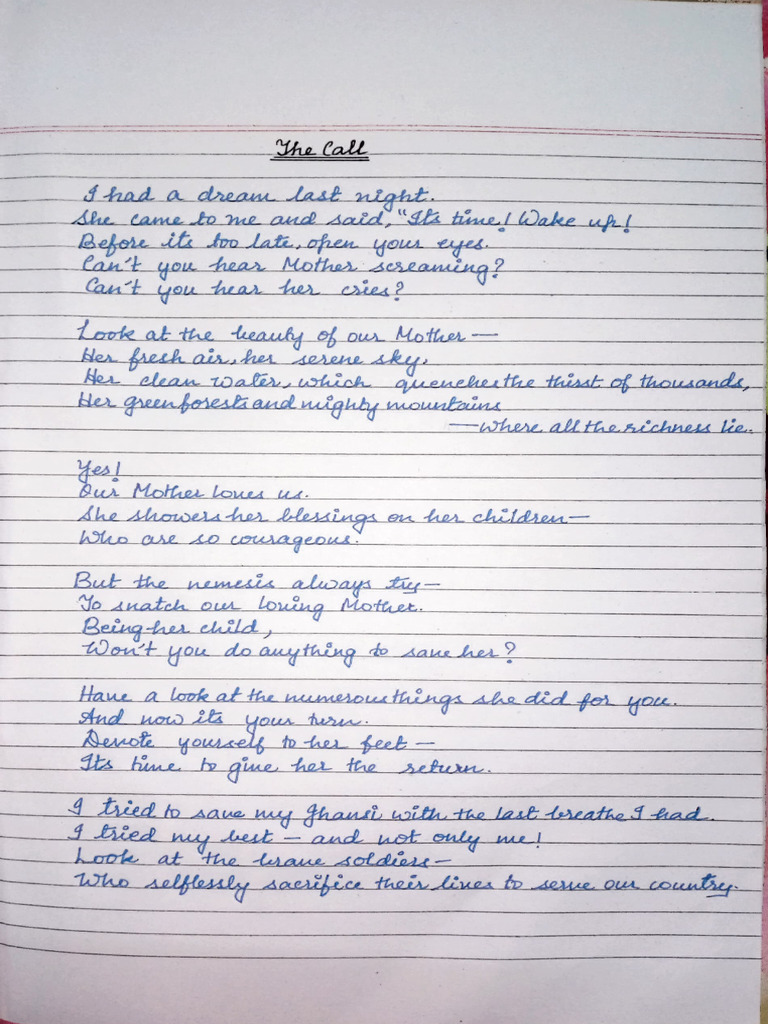 The Call
I had a dream last night.
She came to me and said, "Its time! Wake up!
Before its too late, open your eyes.
Can't you hear Mother screaming?
Can't you hear her cries?
Look at the beauty of our Mother —
Her fresh air, her serene sky,
Her clean water, which quenches the thirst of thousands,
Her green forests and mighty mountains
— where all the richness lie.
Yes!
Our Mother loves us.
She showers her blessings on her children —
Who are so courageous.
But the nemesis always try —
To snatch our loving Mother.
Being her child,
Won't you do anything to save her?
Have a look at the numerous things she did for you.
And now its your turn.
Devote yourself to her feet —
Its time to give her the return.
I tried to save my Jhansi with the last breathe I had.
I tried my best — and not only me!
Look at the brave soldiers —
Who selflessly sacrifice their lives to serve our country.